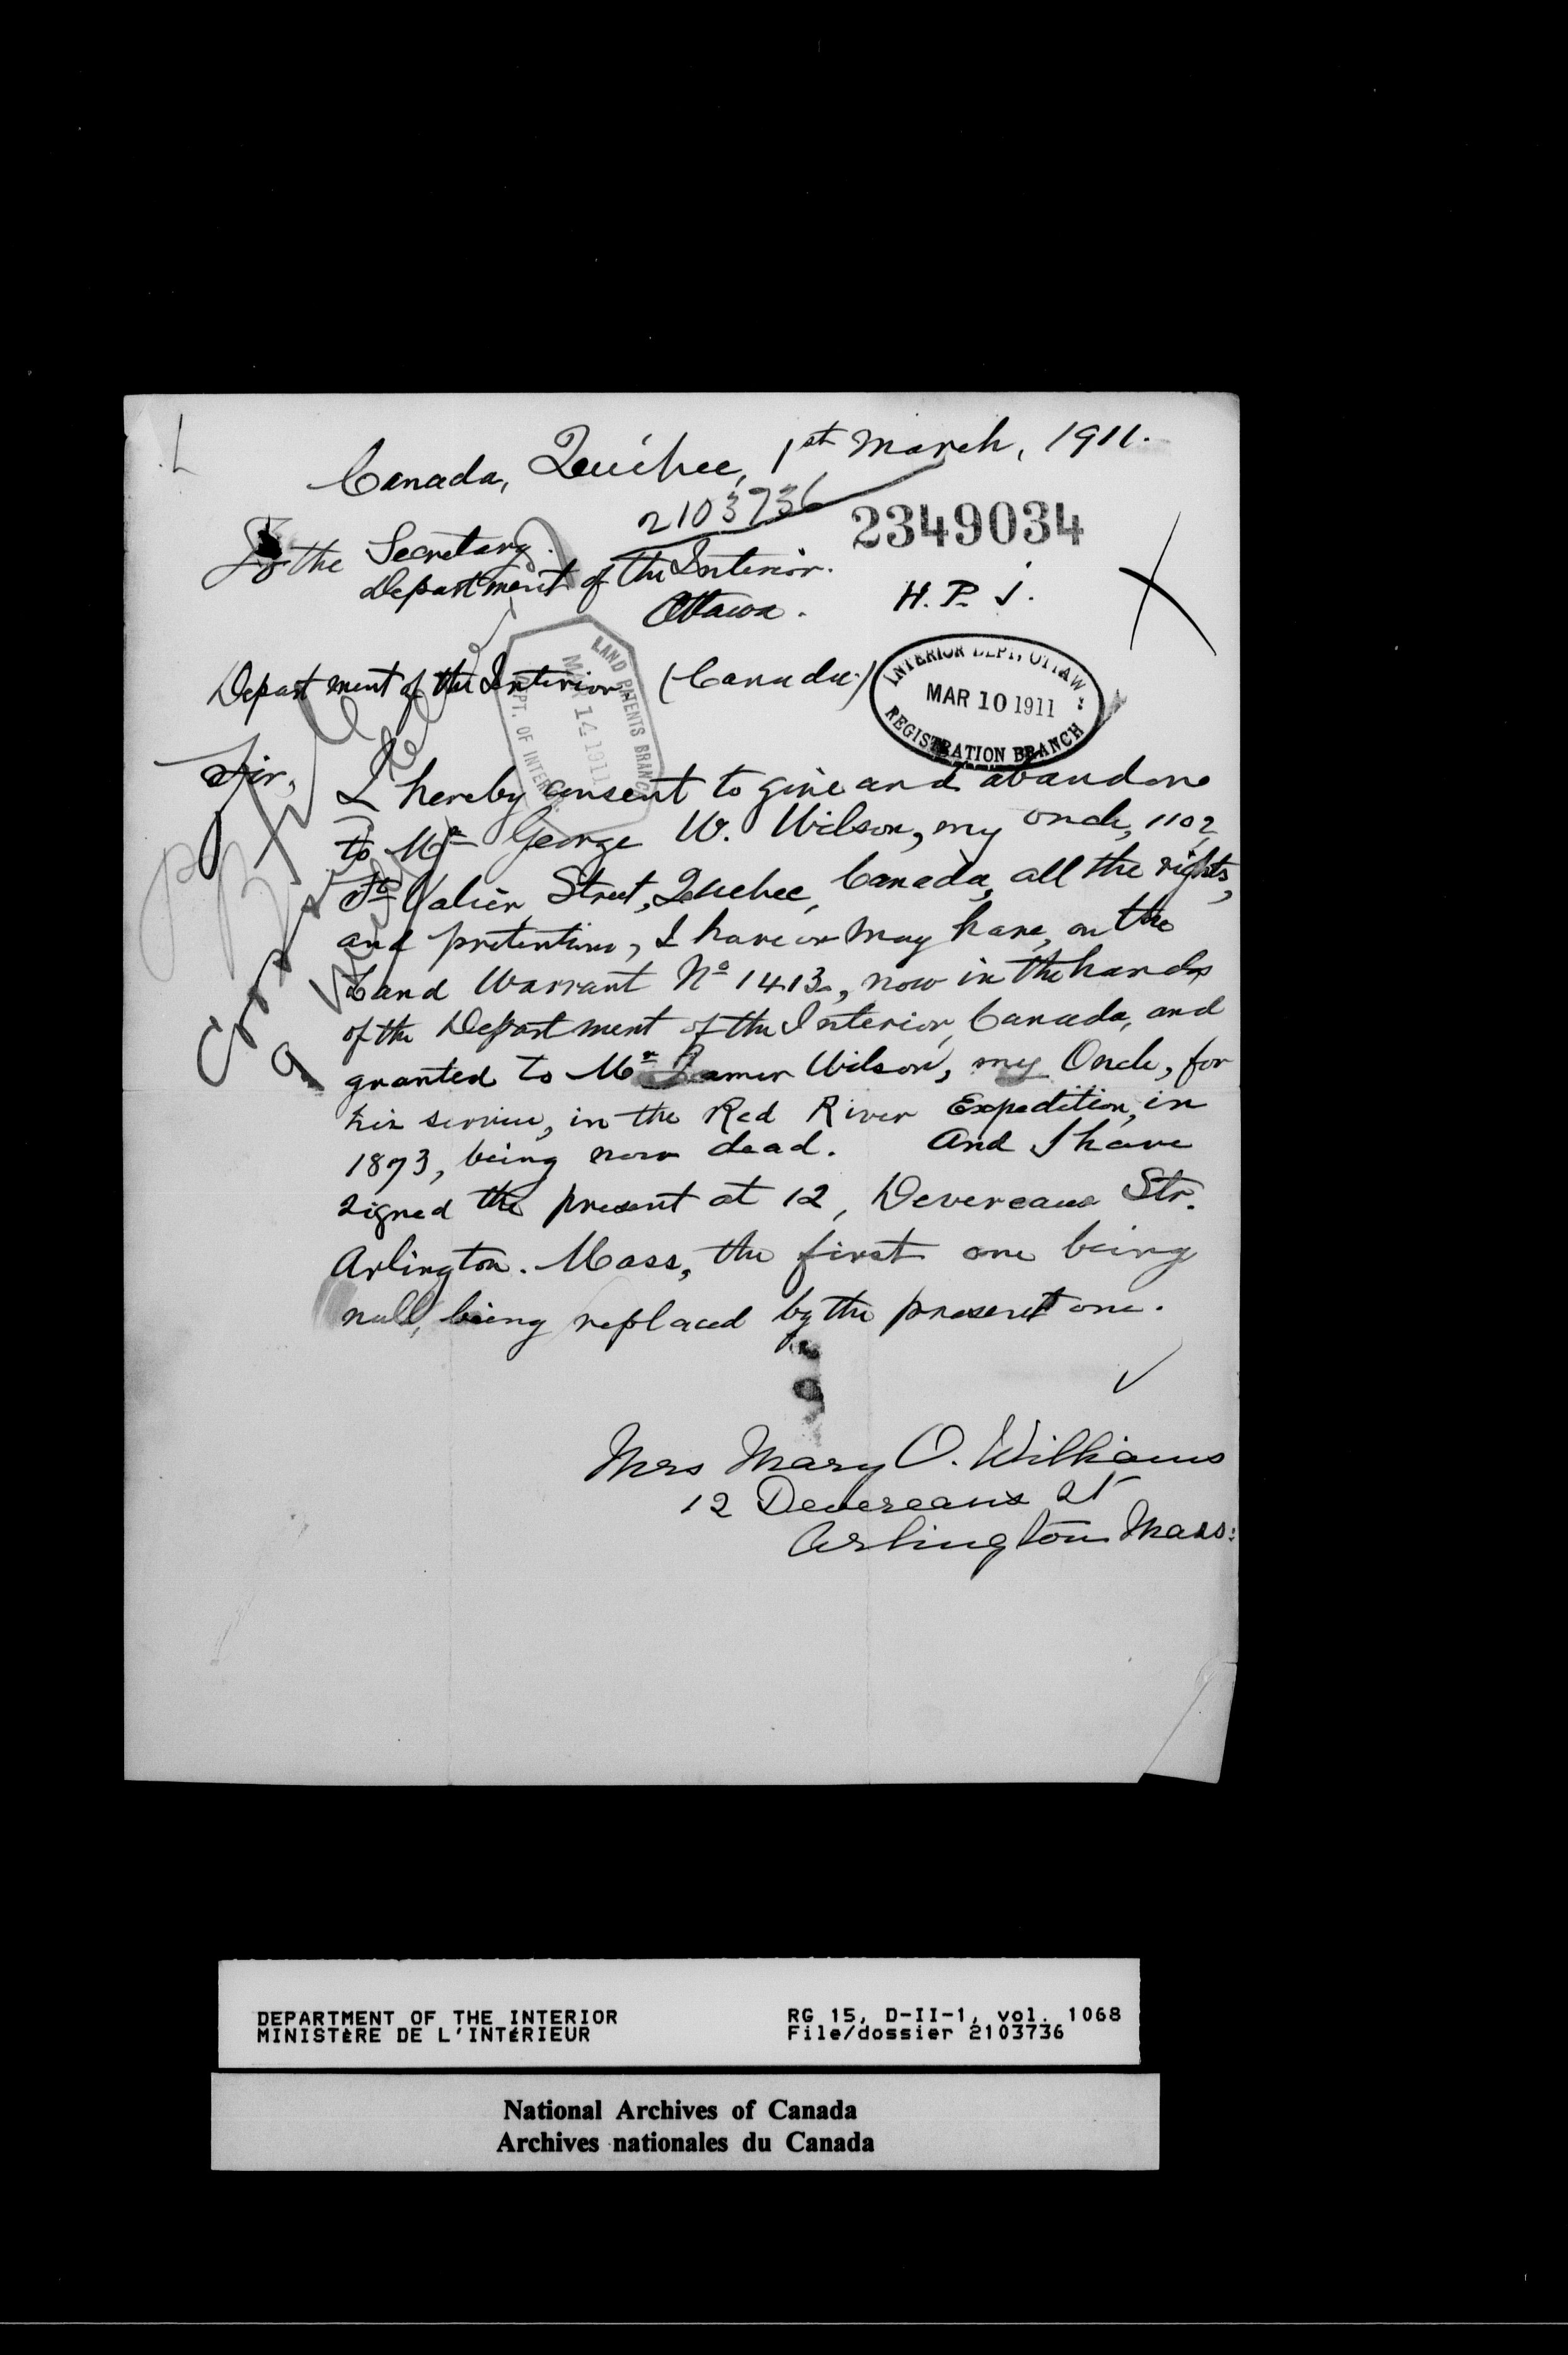 Canada, Québec, 1st March, 1911.
2103736
2349034
To the Secretary.
Department of the Interior.
Ottawa.
H. P. J.
Department of the Interior (Canada.)
LAND PATENTS BRANCH
MAR 14 1911
DEPT. OF INTERIOR
INTERIOR DEPT. OTTAWA
MAR 10 1911
REGISTRATION BRANCH
Sir,
I hereby consent to give and abandone
to Mr George W. Wilson, my oncle, 1102
St Valier Street, Quebec, Canada, all the rights,
and pretentions, I have or may have, on the
Land Warrant No 1413, now in the hands
of the Department of the Interior, Canada, and
granted to Mr James Wilson, my Oncle, for
his service, in the Red River Expedition, in
1873, being now dead. And I have
signed the present at 12, Devereaux Str.
Arlington. Mass, the first one being
null, being replaced by the present one.
Mrs Mary O. Williams
12 Devereaux St
Arlington Mass:
DEPARTMENT OF THE INTERIOR
MINISTÈRE DE L'INTÉRIEUR
RG 15, D-II-1, vol. 1068
File/dossier 2103736
National Archives of Canada
Archives nationales du Canada